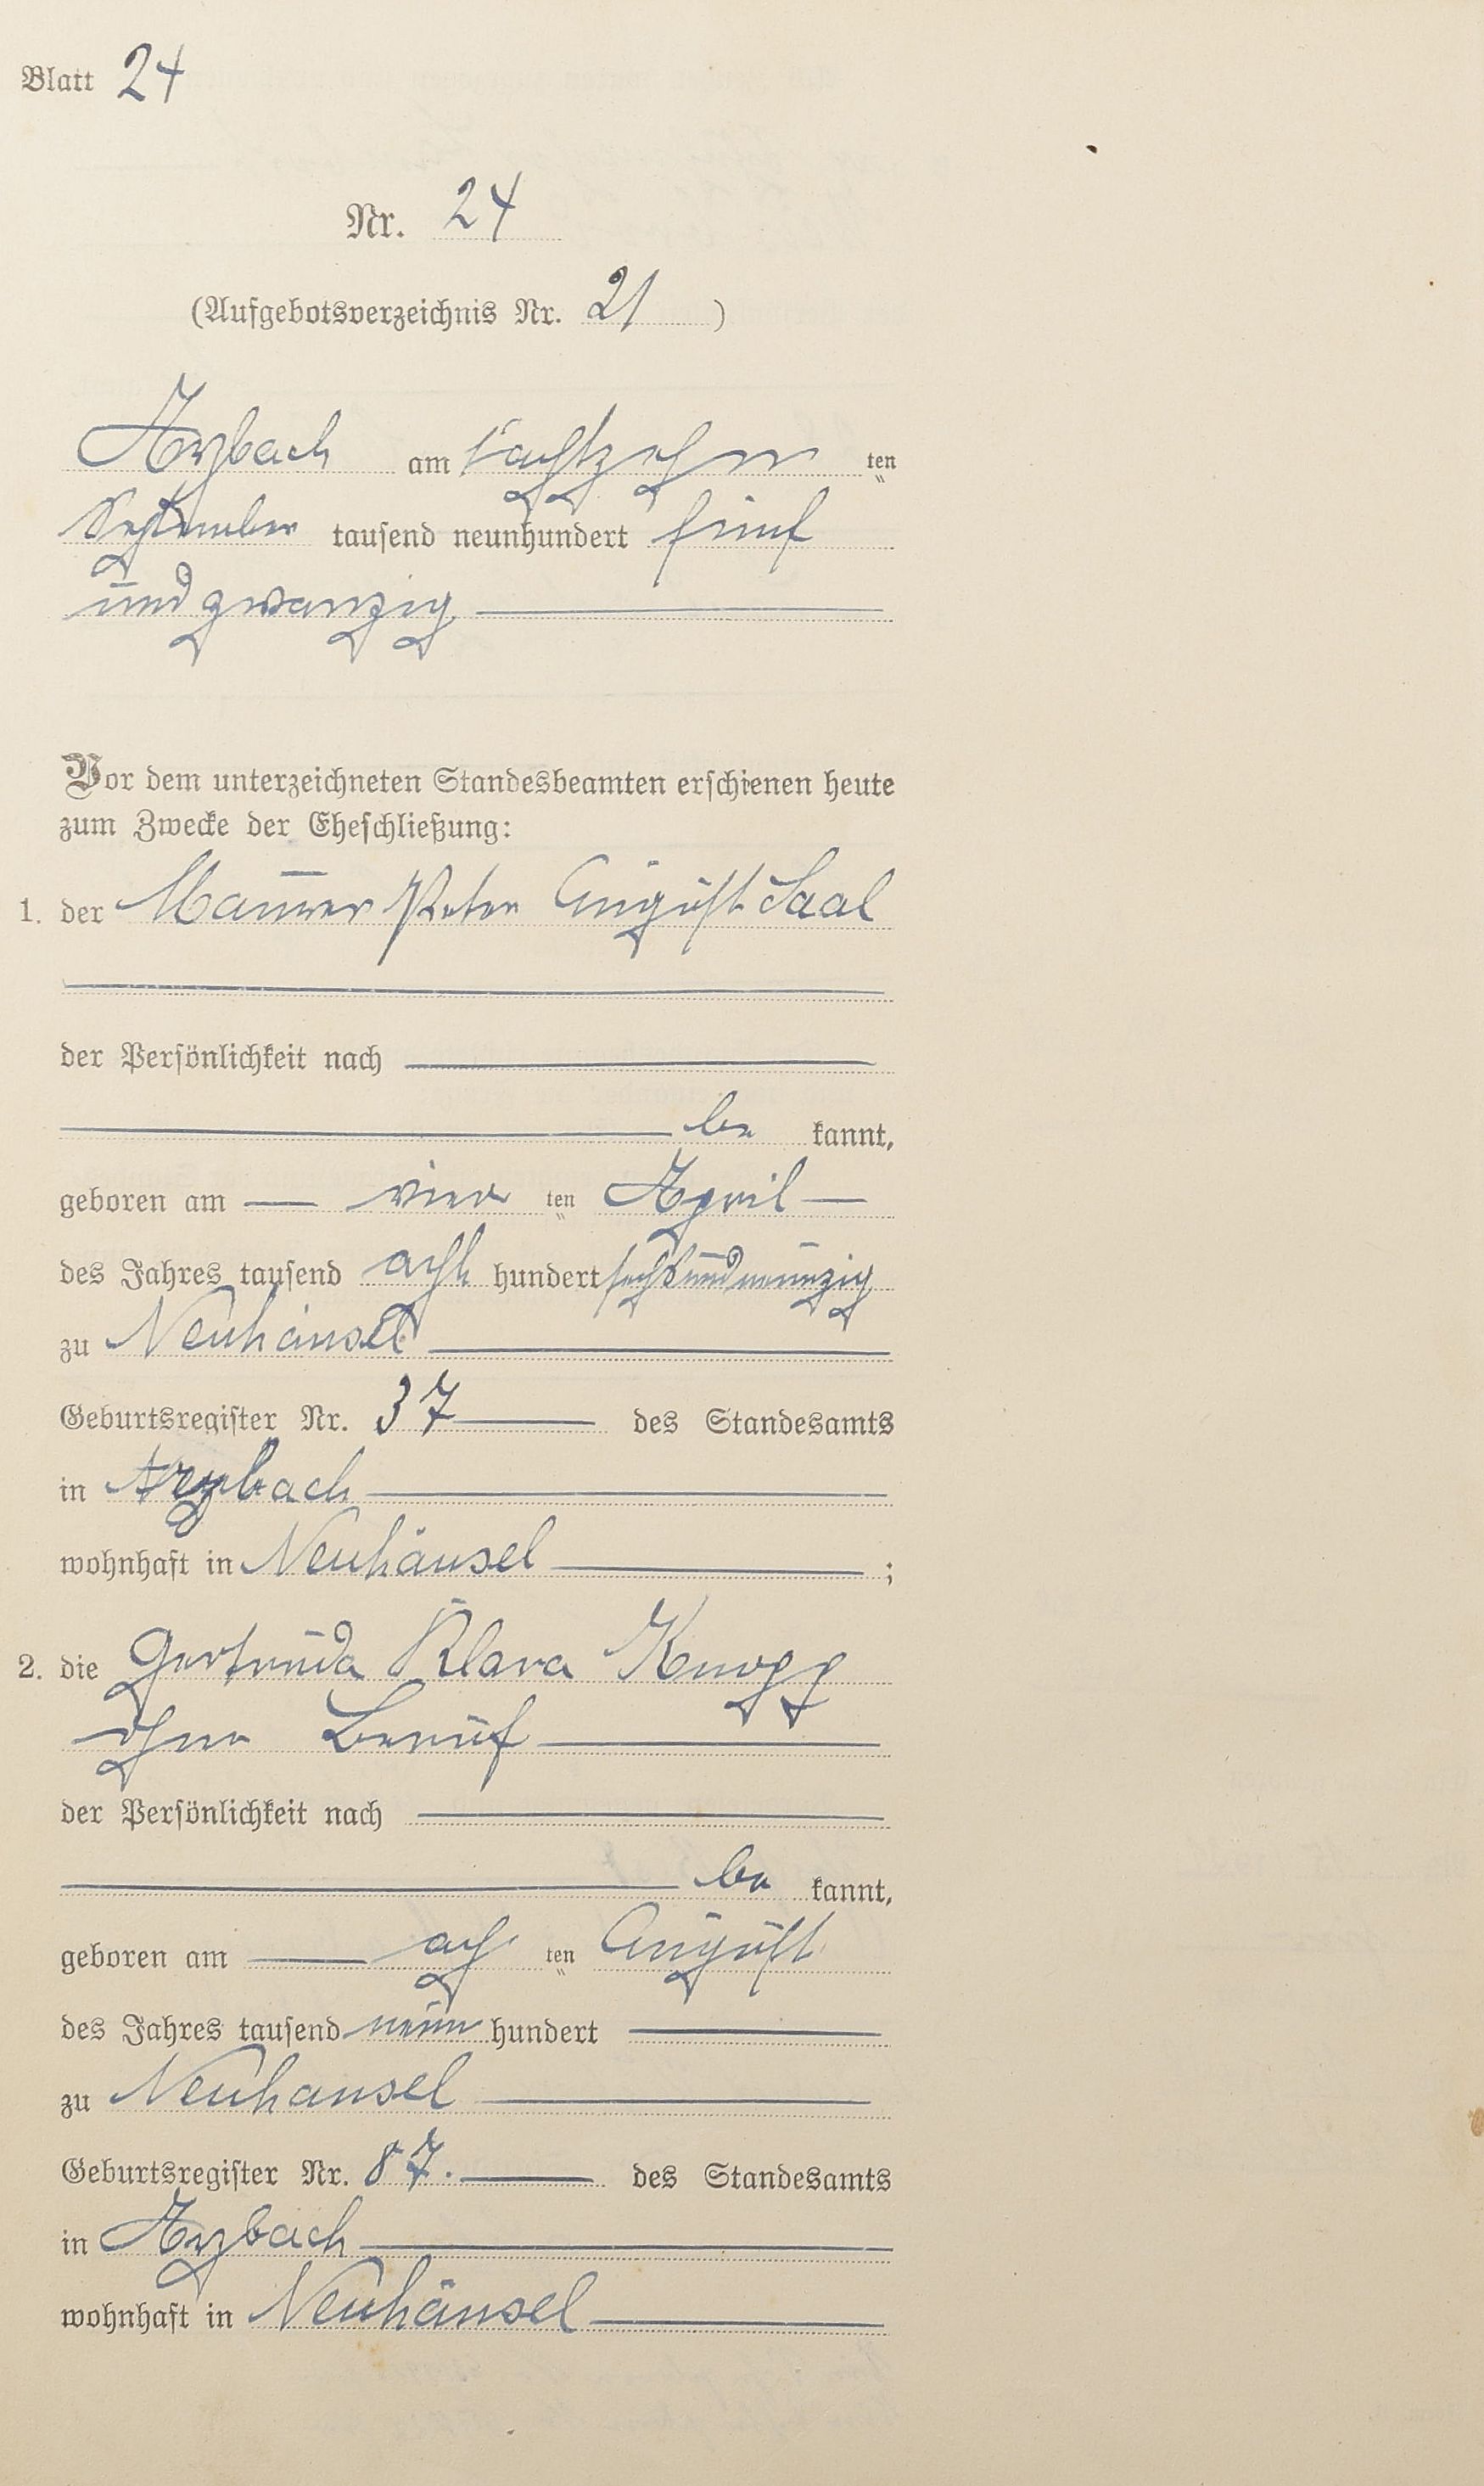 Blatt 24
Nr. 24
(Aufgebotsverzeichnis Nr. 21)
Arzbach am achtzehn ten
September tausend neunhundert fünf
und zwanzig
Vor dem unterzeichneten Standesbeamten erschienen heute
zum Zwecke der Eheschließung:
1. der Maurer Peter August Saal
der Persönlichkeit nach
be kannt,
geboren am vier ten April
des Jahres tausend acht hundert sechsundneunzig
zu Neuhäusel
Geburtsregister Nr. 37 des Standesamts
in Arzbach
wohnhaft in Neuhäusel ;
2. die Gertruda Klara Knopp
ohne Beruf
der Persönlichkeit nach
be kannt,
geboren am ach ten August
des Jahres tausend neun hundert
zu Neuhausel
Geburtsregister Nr. 87. des Standesamts
in Arzbach
wohnhaft in Neuhäusel